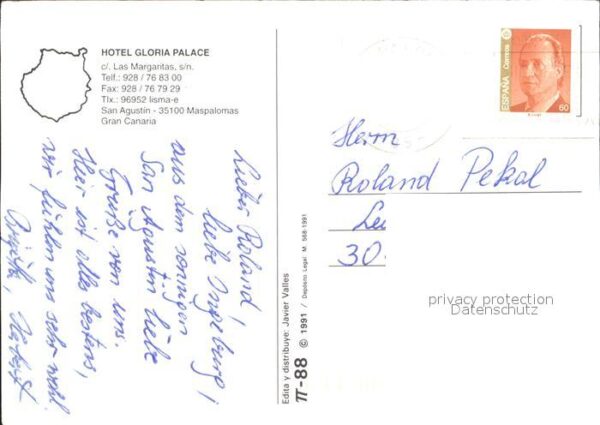 HOTEL GLORIA PALACE
c/. Las Margaritas, s/n.
Telf.: 928 / 76 83 00
Fax: 928 / 76 79 29
Tlx.: 96952 lisma-e
San Agustín - 35100 Maspalomas
Gran Canaria
Lieber Roland,
liebe Ingeburg!
aus dem sonnigen
San Agustin liebe
Grüße von uns.
Hier ist alles bestens,
wir fühlen uns sehr wohl
Brigitte, Herbert
Edita y distribuye: Javier Valles
π-88 © 1991 / Depósito Legal M. 568-1991
ESPAÑA Correos
60
Herrn
Roland Pekal
30.
privacy protection
Datenschutz